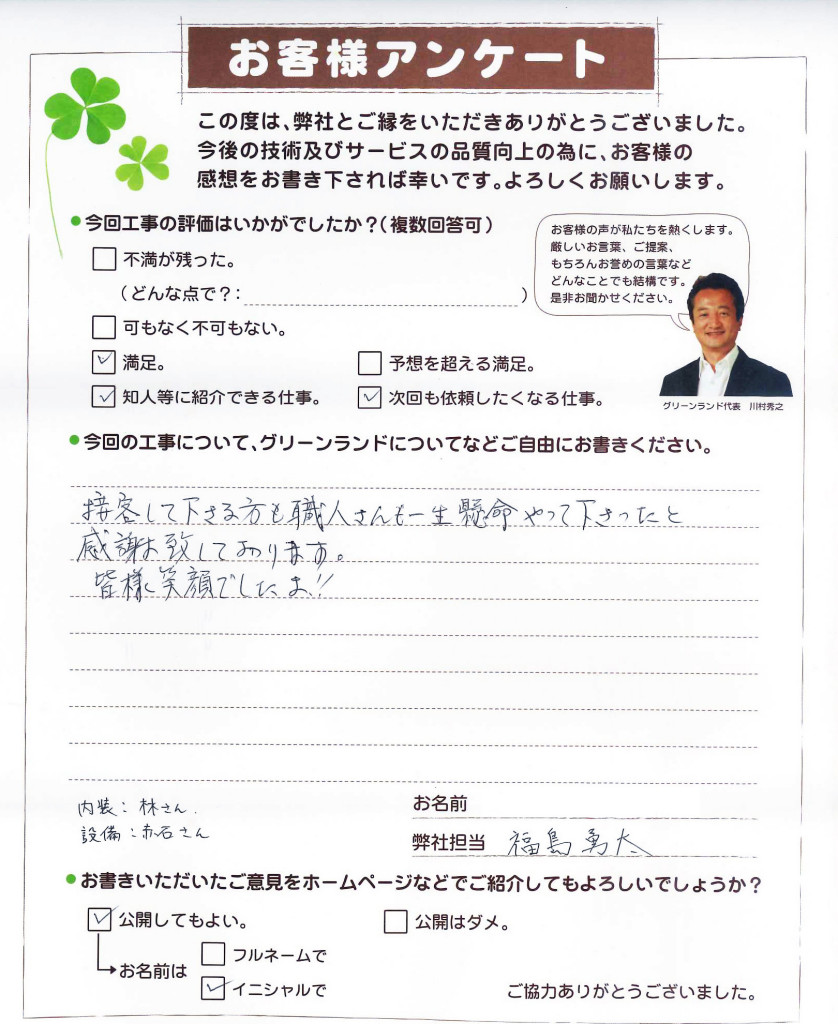 お客様アンケート
この度は、弊社とご縁をいただきありがとうございました。
今後の技術及びサービスの品質向上の為に、お客様の
感想をお書き下されば幸いです。よろしくお願いします。
今回工事の評価はいかがでしたか？（複数回答可）
不満が残った。
（どんな点で？：　）
可もなく不可もない。
満足。
予想を超える満足。
知人等に紹介できる仕事。
次回も依頼したくなる仕事。
お客様の声が私たちを熱くします。
厳しいお言葉、ご提案、
もちろんお誉めの言葉など
どんなことでも結構です。
是非お聞かせください。
グリーンランド代表　川村秀之
今回の工事について、グリーンランドについてなどご自由にお書きください。
接客して下さる方も職人さんも一生懸命やって下さったと
感謝お致しております。
皆様笑顔でしたよ!!
内装：林さん.
設備：赤石さん
お名前
弊社担当　福島勇太
お書きいただいたご意見をホームページなどでご紹介してもよろしいでしょうか？
公開してもよい。
公開はダメ。
お名前は
フルネームで
イニシャルで
ご協力ありがとうございました。